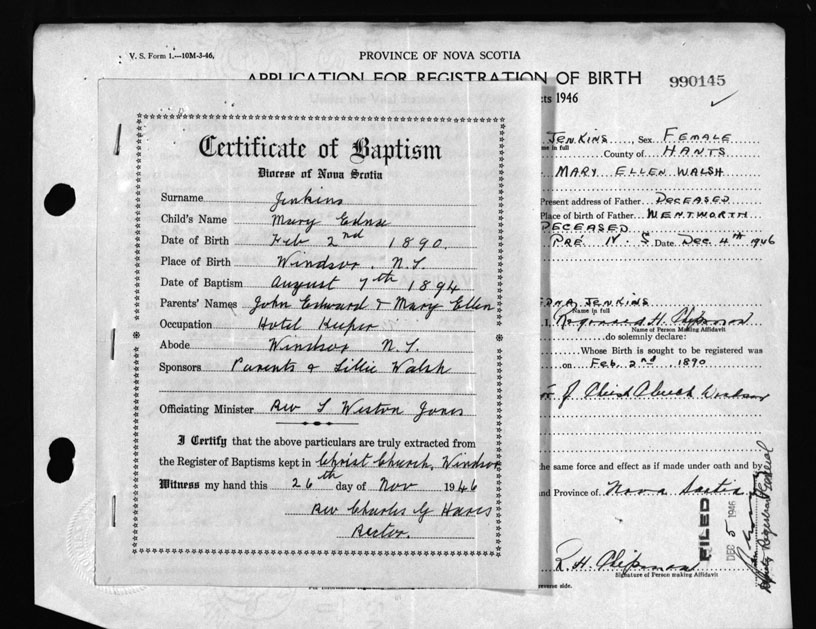 V. S. Form 1.—10M-3-46.
PROVINCE OF NOVA SCOTIA
APPLICATION FOR REGISTRATION OF BIRTH
990145
cts 1946
Certificate of Baptism
Diocese of Nova Scotia
Surname Jenkins
Child's Name Mary Edna
Date of Birth Feb 2nd 1890.
Place of Birth Windsor, N.S.
Date of Baptism August 7th 1894
Parents' Names John Edward & Mary Ellen
Occupation Hotel Keeper
Abode Windsor N.S.
Sponsors Parents & Lillie Walsh
Officiating Minister Rev T Weston Jones
I Certify that the above particulars are truly extracted from
the Register of Baptisms kept in Christ Church, Windsor
Witness my hand this 26th day of Nov 1946
Rev Charles G
Rector.
JENKINS, Sex FEMALE
me in full
County of HANTS
MARY ELLEN WALSH
Present address of Father DECEASED
Place of birth of Father WENTWORTH
DECEASED
PRE N. S. Date DEC. 4TH 1946
EDNA JENKINS
Name in full
I, H. Chipman
Name of Person Making Affidavit
do solemnly declare:
Whose Birth is sought to be registered was
on FEB. 2nd, 1890
of Christ Church Windsor
the same force and effect as if made under oath and by
nd Province of Nova Scotia
FILED
DEC 5 1946
Deputy Registrar General
R. H. Chipman
Signature of Person making Affidavit
reverse side.